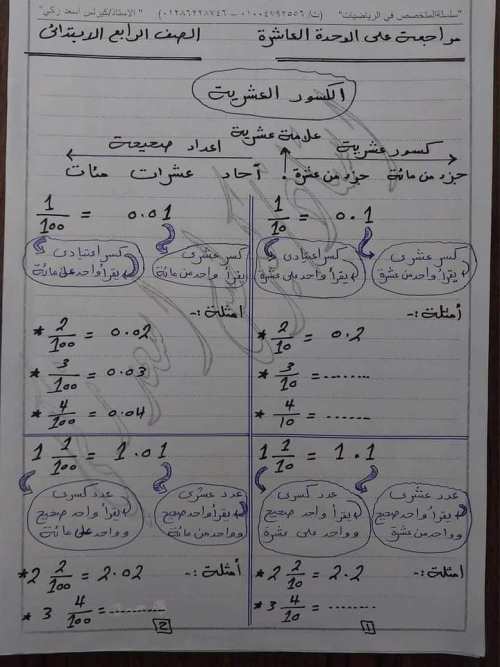 "سلسلة المتخصص في الرياضيات" (ت/ ٠١٠٠٤٧٩٢٥٥٦ – ٠١٢٨٦٢٢٨٧٤٦) "الأستاذ/كيرلس أسعد زكي"
مراجعة على الوحدة العاشرة الصف الرابع الابتدائى
الكسور العشرية
كسور عشرية علامة عشرية اعداد صحيحة
جزء من مائة جزء من عشرة . آحاد عشرات مئات
1/10 = 0.1
كسر عشرى يقرأ واحد من عشرة
كسر اعتيادى يقرأ واحد على عشرة
أمثلة :-
* 2/10 = 0.2
* 3/10 = ........
* 4/10 = .......
1/100 = 0.01
كسر عشرى يقرأ واحد من مائة
كسر اعتيادى يقرأ واحد على مائة
أمثلة :-
* 2/100 = 0.02
* 3/100 = 0.03
* 4/100 = 0.04
1 1/10 = 1.1
عدد عشرى يقرأ واحد صحيح وواحد من عشرة
عدد كسرى يقرأ واحد صحيح وواحد على عشرة
امثلة :-
* 2 2/10 = 2.2
* 3 4/10 = ..........
1
1 1/100 = 1.01
عدد عشرى يقرأ واحد صحيح وواحد من مائة
عدد كسرى يقرأ واحد صحيح وواحد على مائة
أمثلة :-
* 2 2/100 = 2.02
* 3 4/100 = ..........
2